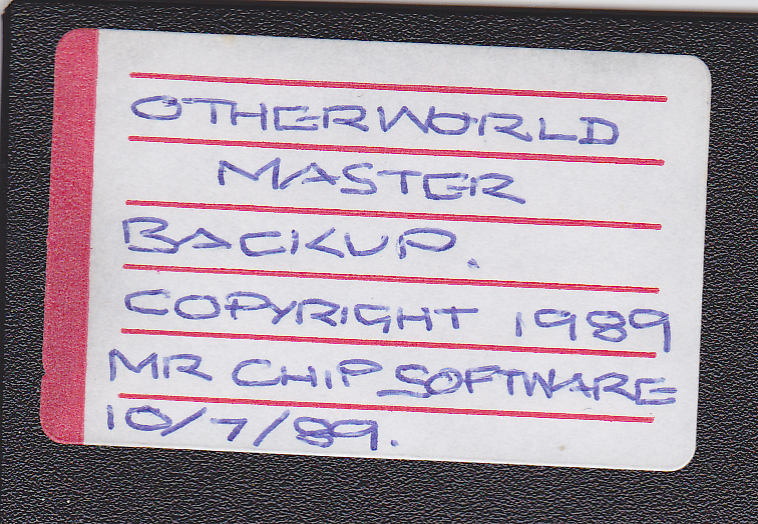 OTHERWORLD
MASTER
BACKUP.
COPYRIGHT 1989
MR CHIP SOFTWARE
10/7/89.